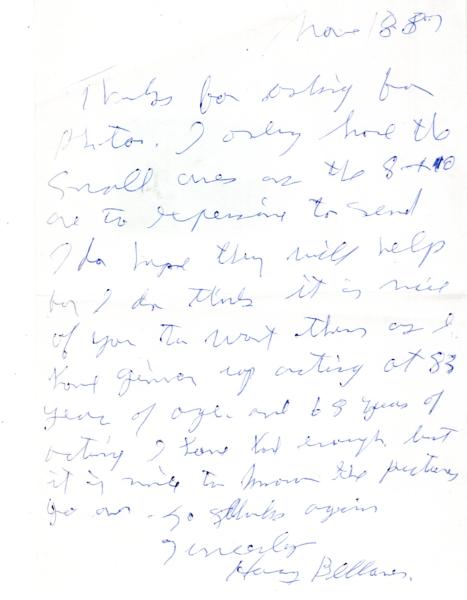 Nov 13 87
Thanks for asking for
photos. I only have the
small ones as the 8 x 10
are to expensive to send
I do hope they will help
for I do think it is nice
of you to want them as I
have given up acting at 83
years of age. and 63 years of
acting I have had enough but
it is nice to know the pictures
go on. So thanks again
Sincerely